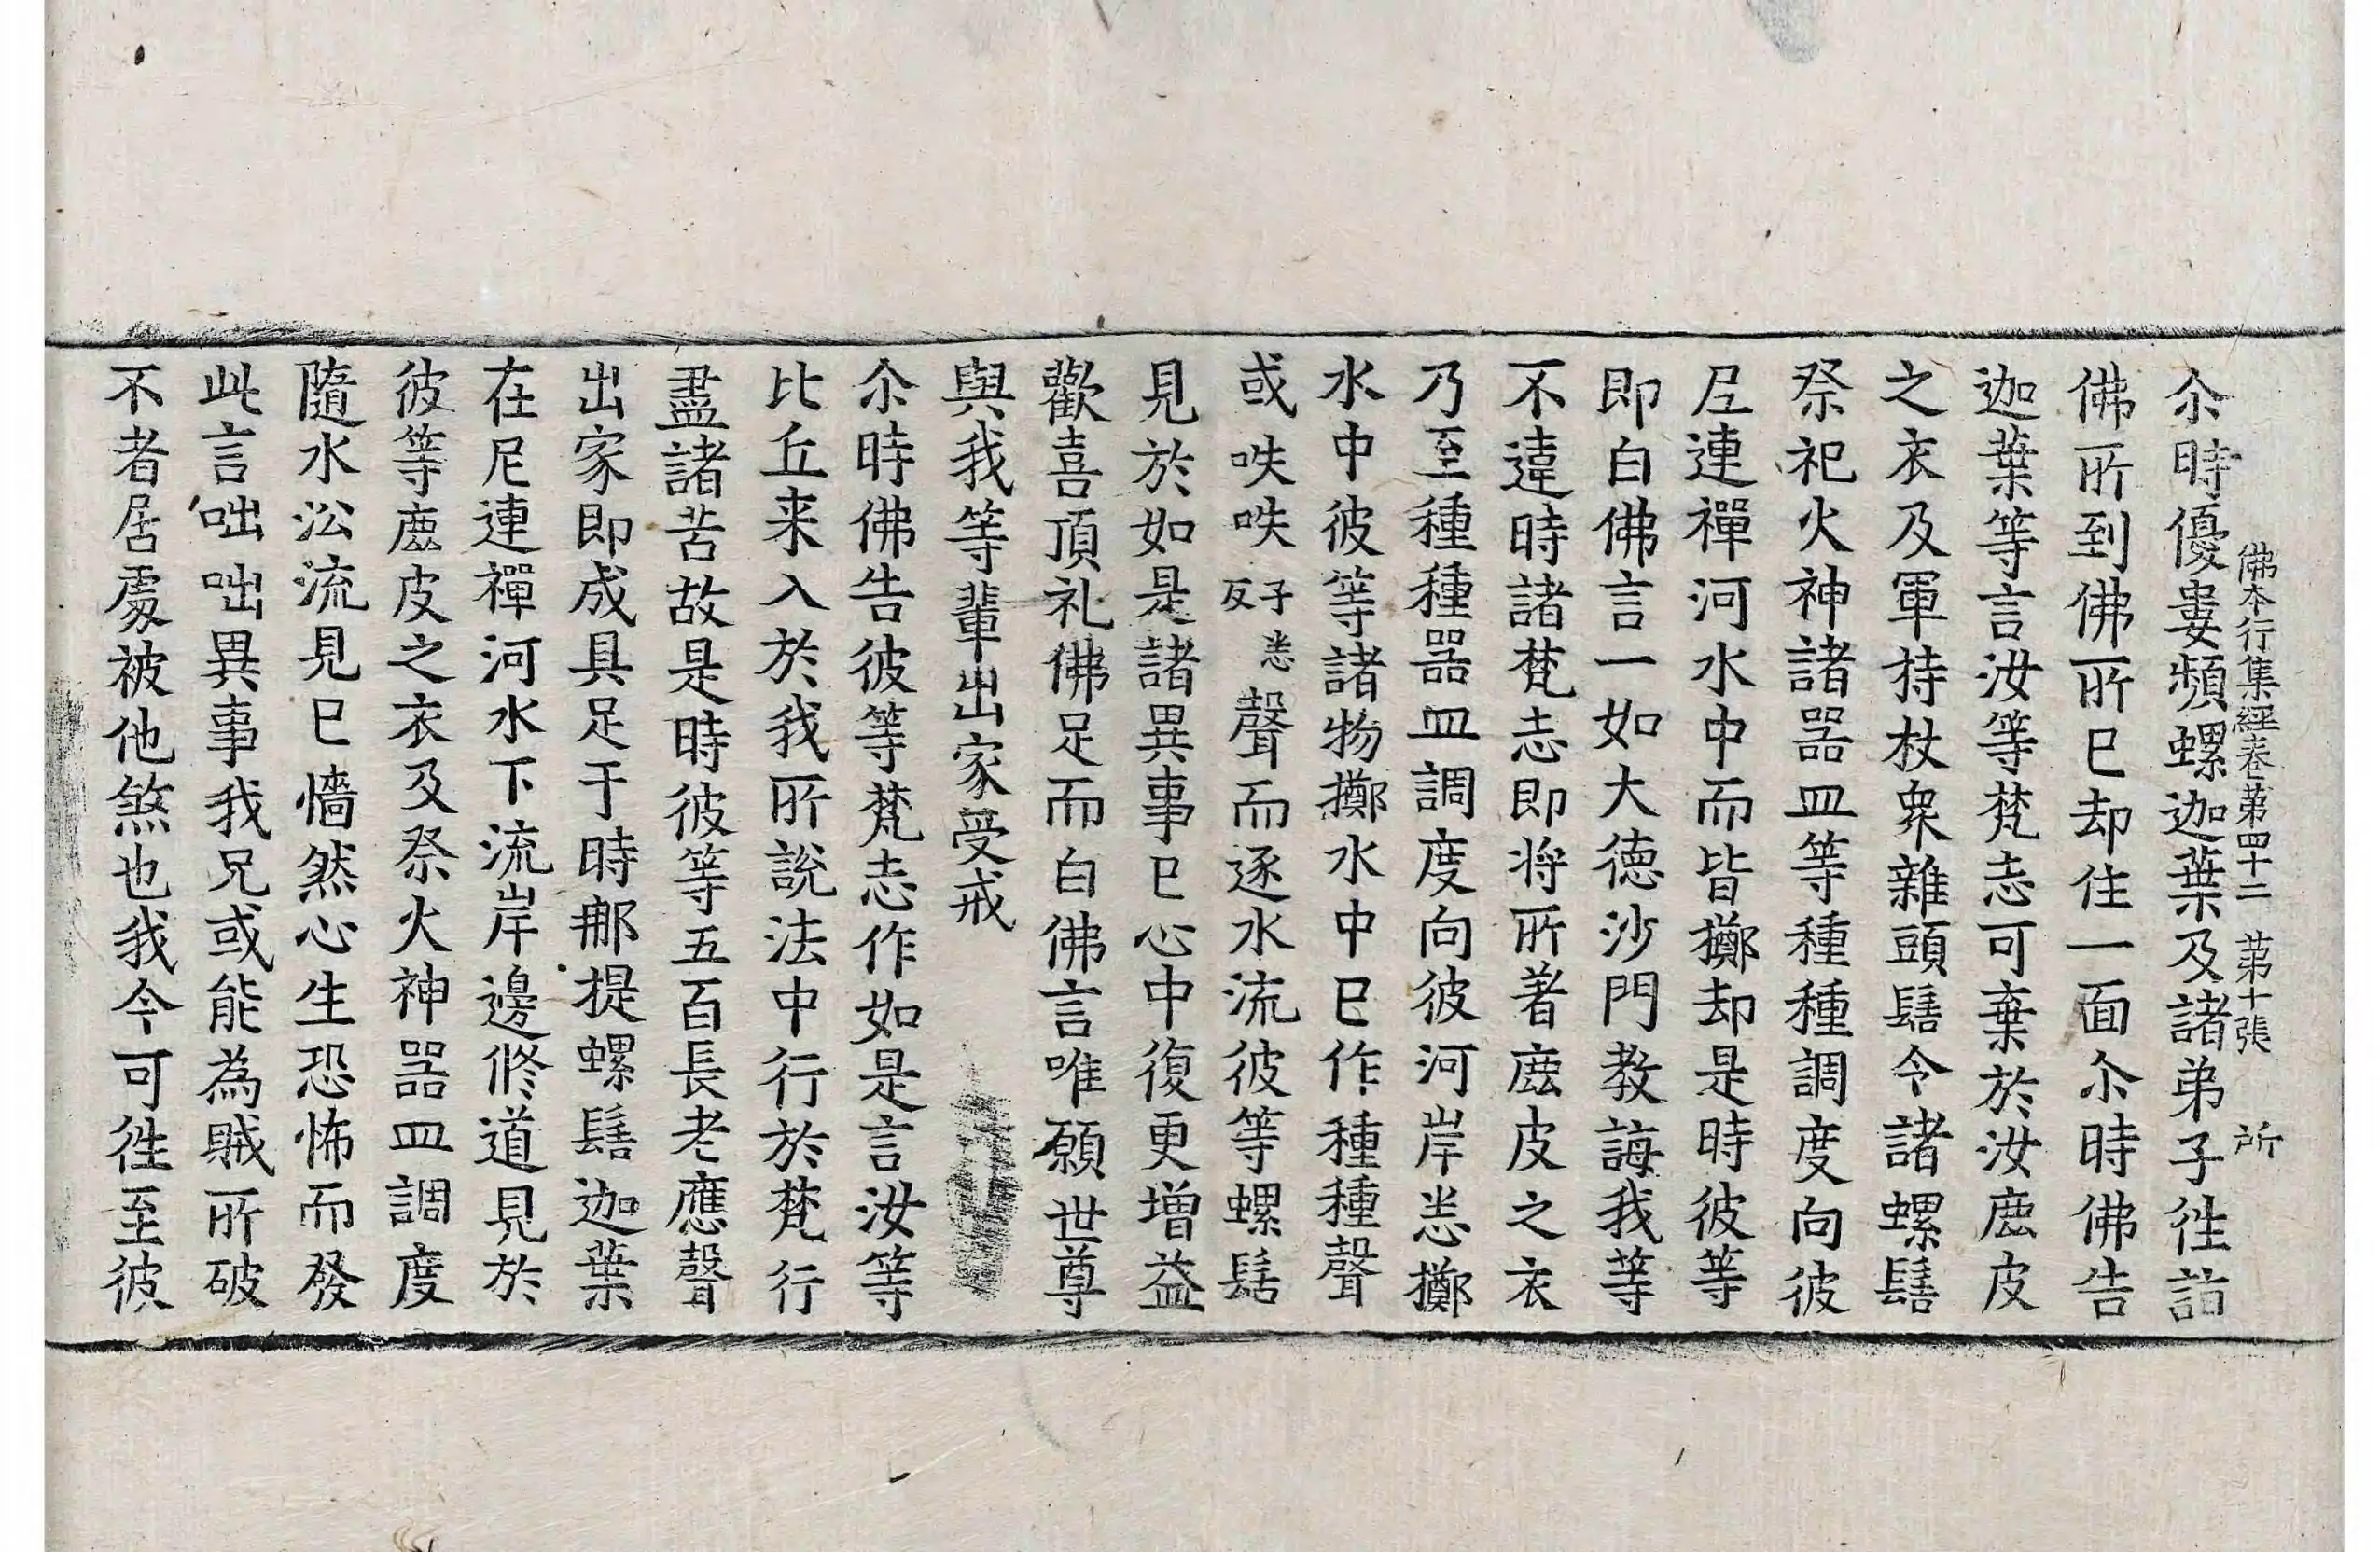 佛本行集經卷苐四十二　苐十張　所
尒時優婁頻螺迦葉及諸弟子徃詣
佛所到佛所已却住一面尒時佛告
迦葉等言汝等梵志可棄於汝鹿皮
之衣及軍持杖衆雜頭髻令諸螺髻
祭祀火神諸器皿等種種調度向彼
尼連禪河水中而皆擲却是時彼等
即白佛言一如大德沙門教誨我等
不違時諸梵志即将所著鹿皮之衣
乃至種種器皿調度向彼河岸悉擲
水中彼等諸物擲水中已作種種聲
或咉咉子悉反聲而逐水流彼等螺髻
見於如是諸異事已心中復更増益
歡喜頂礼佛足而白佛言唯願世尊
與我等輩出家受戒
尒時佛告彼等梵志作如是言汝等
比丘来入於我所說法中行於梵行
盡諸苦故是時彼等五百長老應聲
出家即成具足于時那提螺髻迦葉
在尼連禪河水下流岸邊修道見於
彼等鹿皮之衣及祭火神器皿調度
隨水㳂流見已愮然心生恐怖而發
此言咄咄異事我兄或能為賊所破
不者居處被他煞也我今可徃至彼